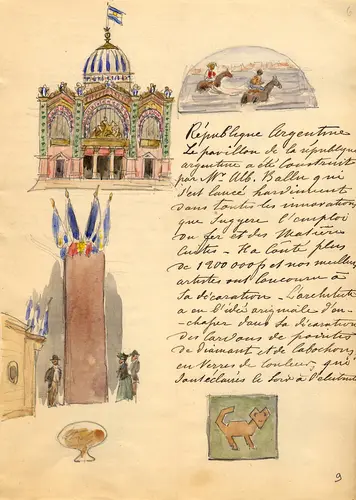 République Argentine
Le pavillon de la république
argentine a été construit
par Mr. Alb. Ballu qui
s'est lancé hardiment
dans toutes les innovations
que suggère l'emploi
du fer et des Matières
Cuites - Il a Coûté plus
de 1200 000f et nos meilleurs
artistes ont concouru à
Sa décoration - L'architecte
a eu l'idée originale d'en-
chasser dans Sa décoration
des cordons de pointes
de diamant et de Cabochons
en Verres de Couleur, qui
Sont éclairés le Soir à l'électricité
9